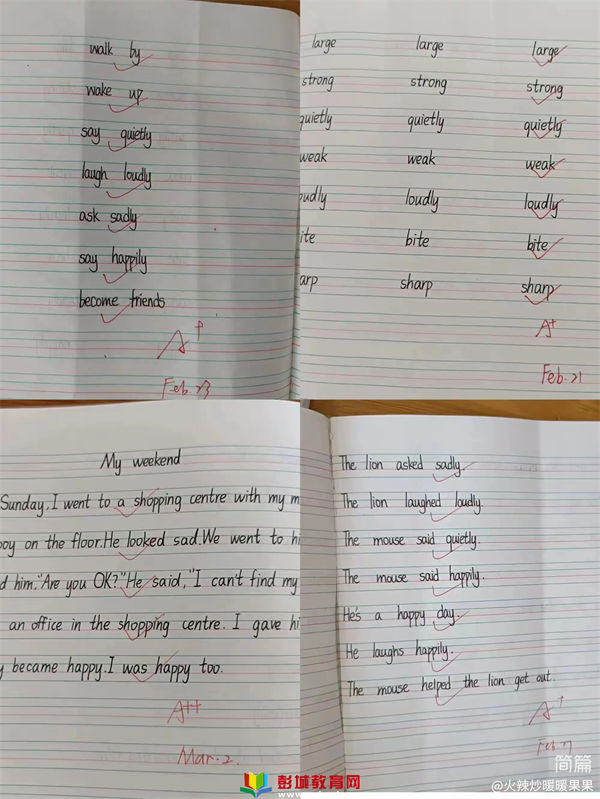 walk by
wake up
say quietly
laugh loudly
ask sadly
say happily
become friends
A+
Feb. 23
large large large
strong strong strong
quietly quietly quietly
weak weak weak
oudly loudly loudly
ite bite bite
arp sharp sharp
A+
Feb. 21
My weekend
Sunday. I went to a shopping centre with my m
oy on the floor. He looked sad. We went to hi
d him. "Are you OK?" He said, "I can't find my
an office in the shopping centre. I gave hi
y became happy. I was happy too.
A++
Mar. 2.
The lion asked sadly.
The lion laughed loudly.
The mouse said quietly.
The mouse said happily.
He's a happy day.
He laughs happily.
The mouse helped the lion get out.
A+
Feb.
简篇
彭城教育网
@火辣炒暖暖果果